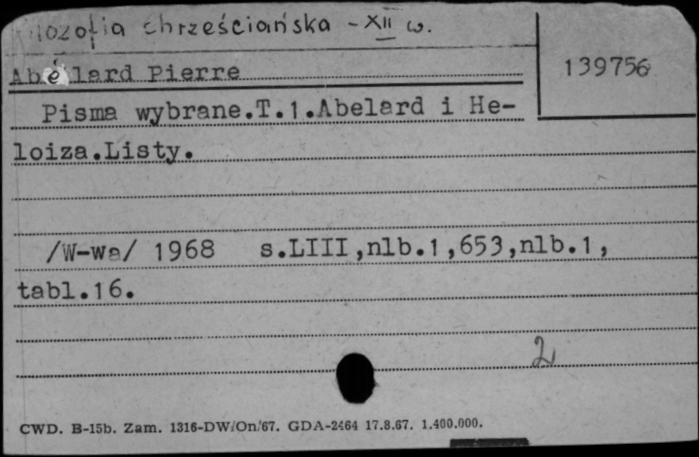 Filozofia chrześciańska - XII w.
139756
Abélard Pierre
Pisma wybrane.T.1.Abelard i He-
loiza.Listy.
/W-wa/ 1968 s.LIII,nlb.1,653,nlb.1,
tabl.16.
2
CWD. B-15b. Zam. 1316-DW/On/67. GDA-2464 17.8.67. 1.400.000.